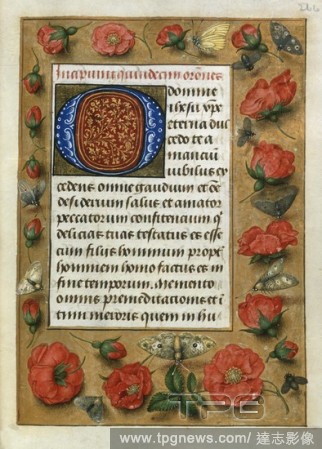 Incipiunt quindecim orones
O domine
ihesu xpe
eterna dul
cedo te a
mancium
iubilus ex
cedens omne gaudium et oe
desiderium salus et amator
peccatorum confitencium q
delicias tuas testatus es esse
cum filiis hominum propt
hominem homo factus es in
fine temporum. Memento
omnis premeditacionis et i
timi meroris quem in hu
TPG
www.tpgnews.com/ 達志影像